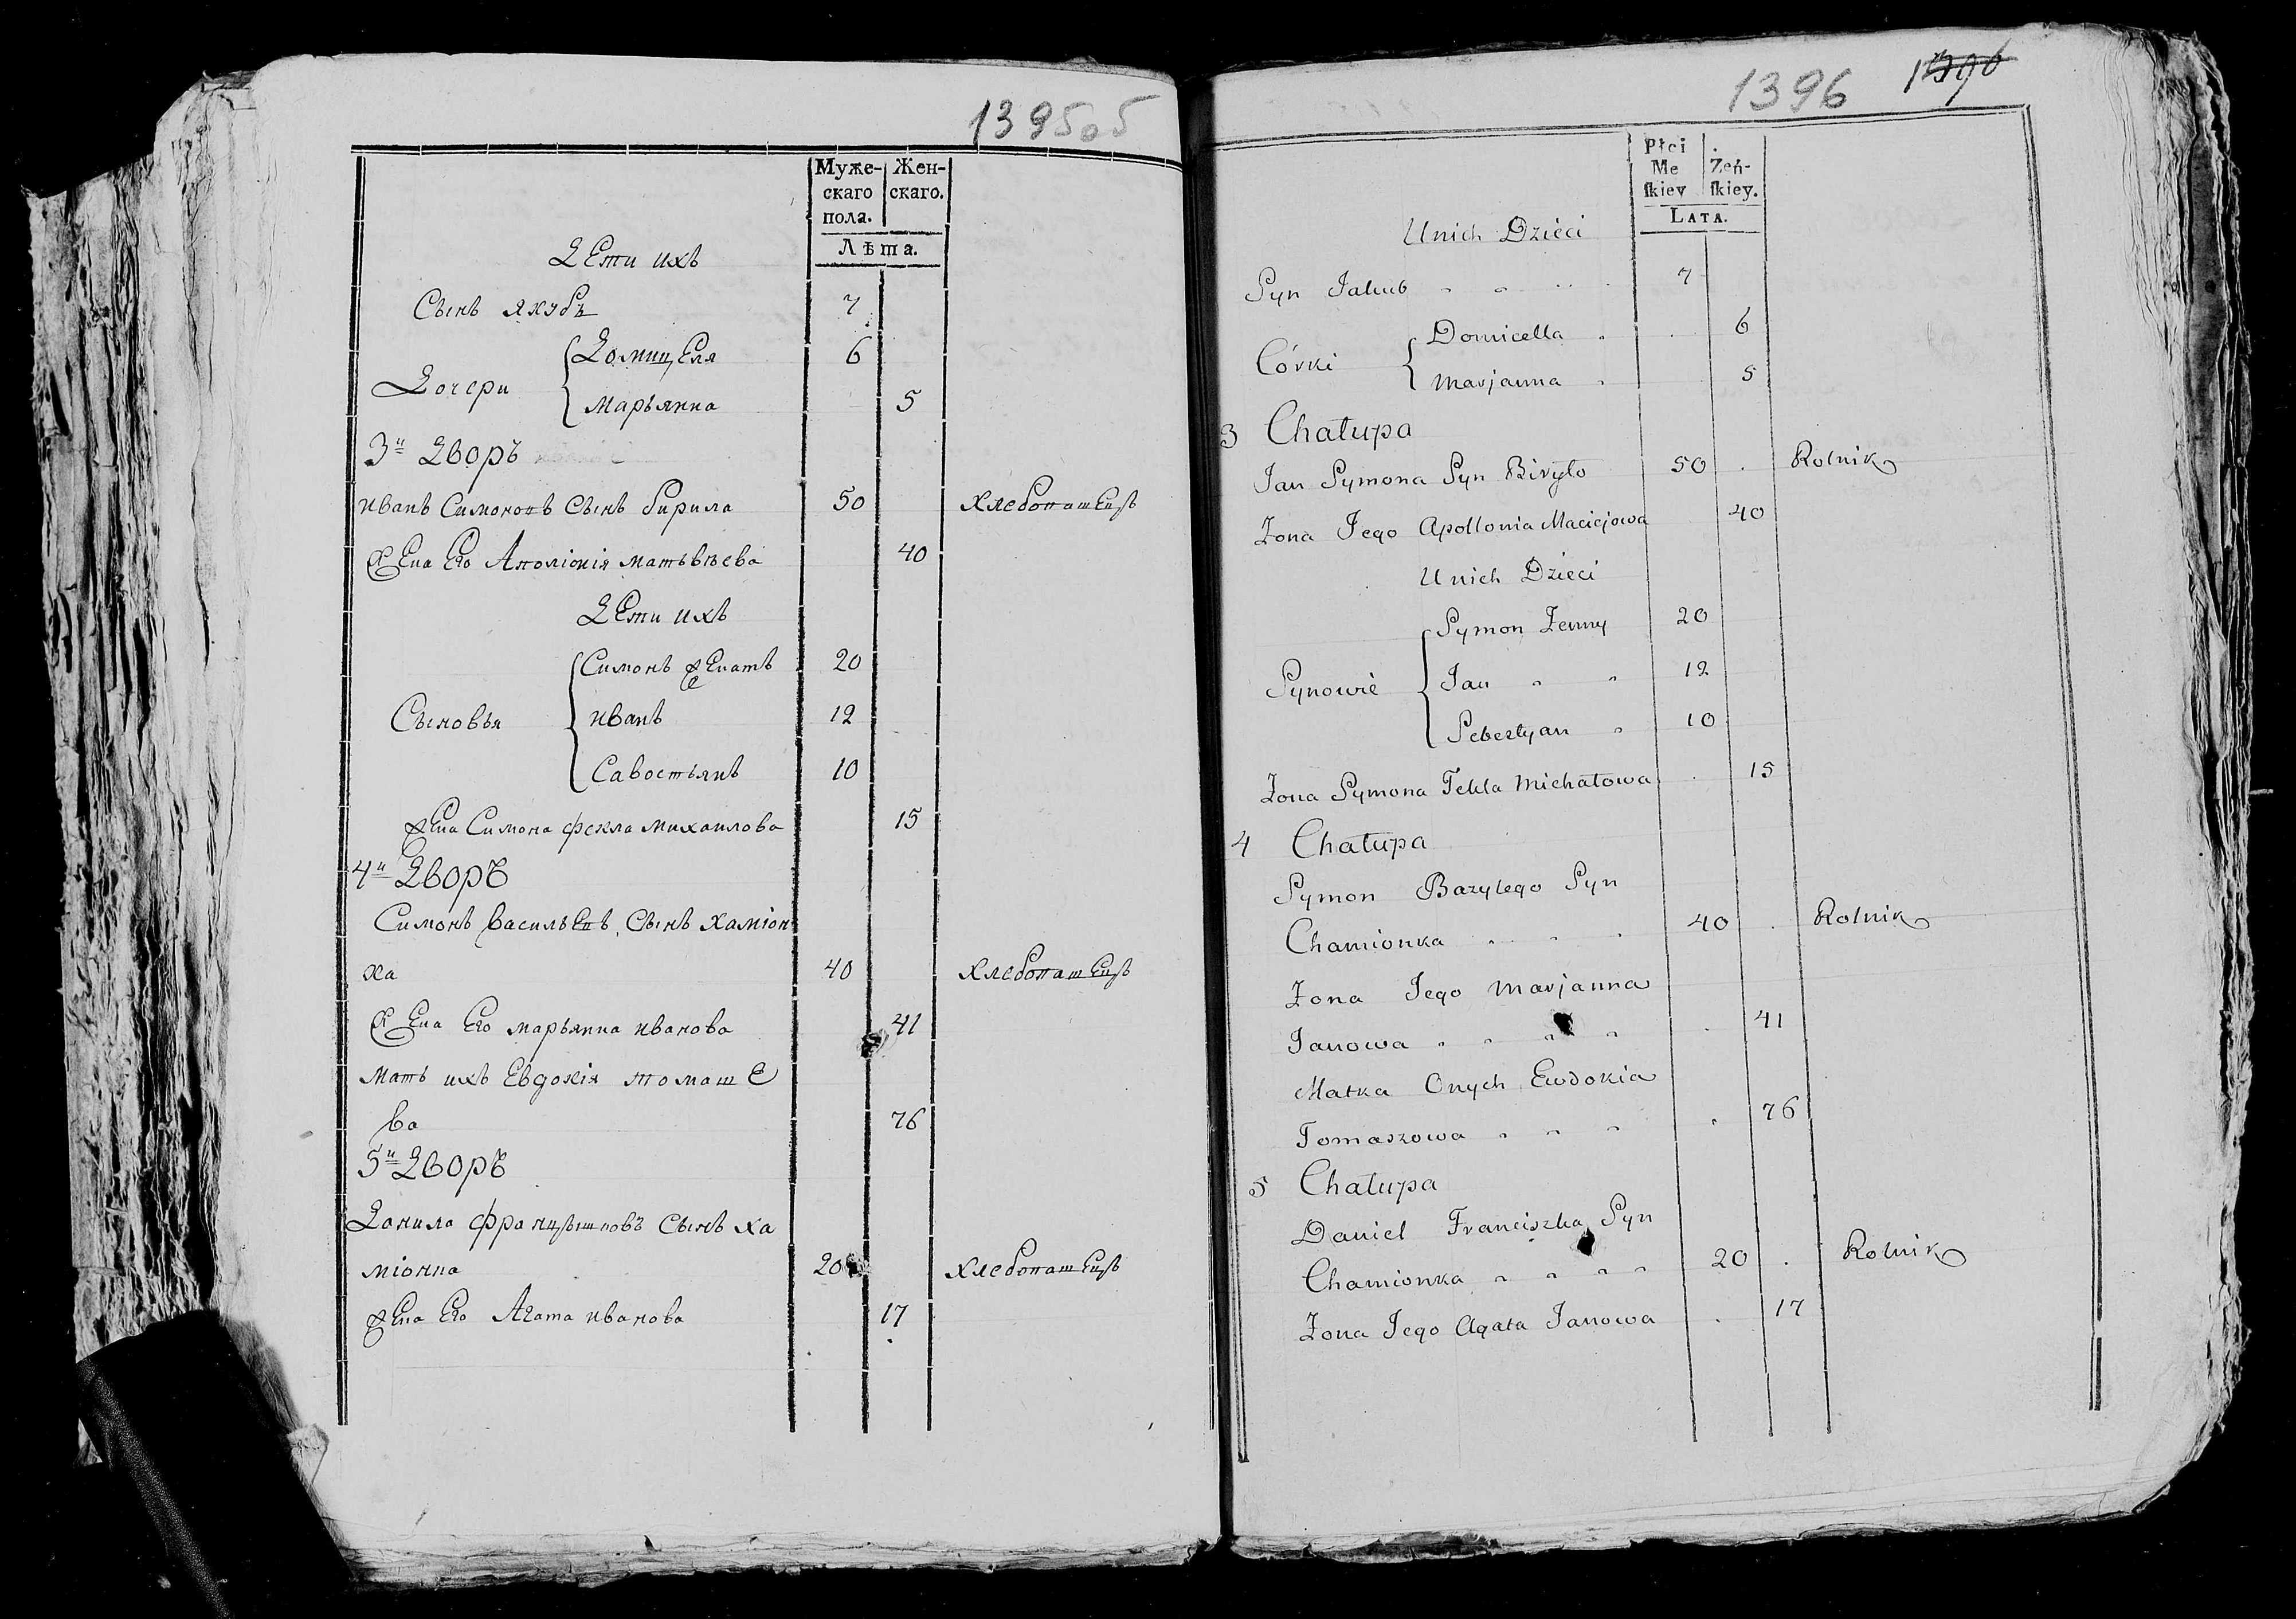 1395об
Муже-
скаго
пола.
Жен-
скаго.
Лѣта.
Дети ихъ
Сынъ Якубъ 7
Дочери
Домицеля 6
Марьянна 5
3й Дворъ
Иванъ Симоновъ Сынъ бирила 50 Хлебопашецъ
Жена Его Аполіонія Матьвѣева 40
Дети ихъ
Сыновья
Симонъ женатъ 20
Иванъ 12
Савостьянъ 10
жена Симона Фекла Михаилова 15
4й Дворъ
Симонъ Васильевъ Сынъ Хаміон
ка 40 Хлебопашецъ
Жена Его Марьянна Иванова 41
Мать ихъ Евдокія Томаше
ва 76
5й Дворъ
Данила Францышковъ Сынъ Ха
міонка 20 Хлебопашецъ
жена Его Агата Иванова 17
1396 1390
Płci
Mę
ſkiey
Żeń-
ſkiey.
LATA.
Unich Dzieci
Syn Jakub 7
Córki
Domicella 6
Marjanna 5
3 Chałupa
Jan Symona Syn Biryło 50 Rolnik
Żona Jego Apollonia Maciejowa 40
Unich Dzieci
Synowie
Symon Żenny 20
Jan 12
Sebestyan 10
Żona Symona Tekla Michałowa 15
4 Chałupa
Symon Bazylego Syn
Chamionka 40 Rolnik
Żona Jego Marjanna
Janowa 41
Matka Onych Ewdokia
Tomaszowa 76
5 Chałupa
Daniel Franciszka Syn
Chamionka 20 Rolnik
Żona Jego Agata Janowa 17